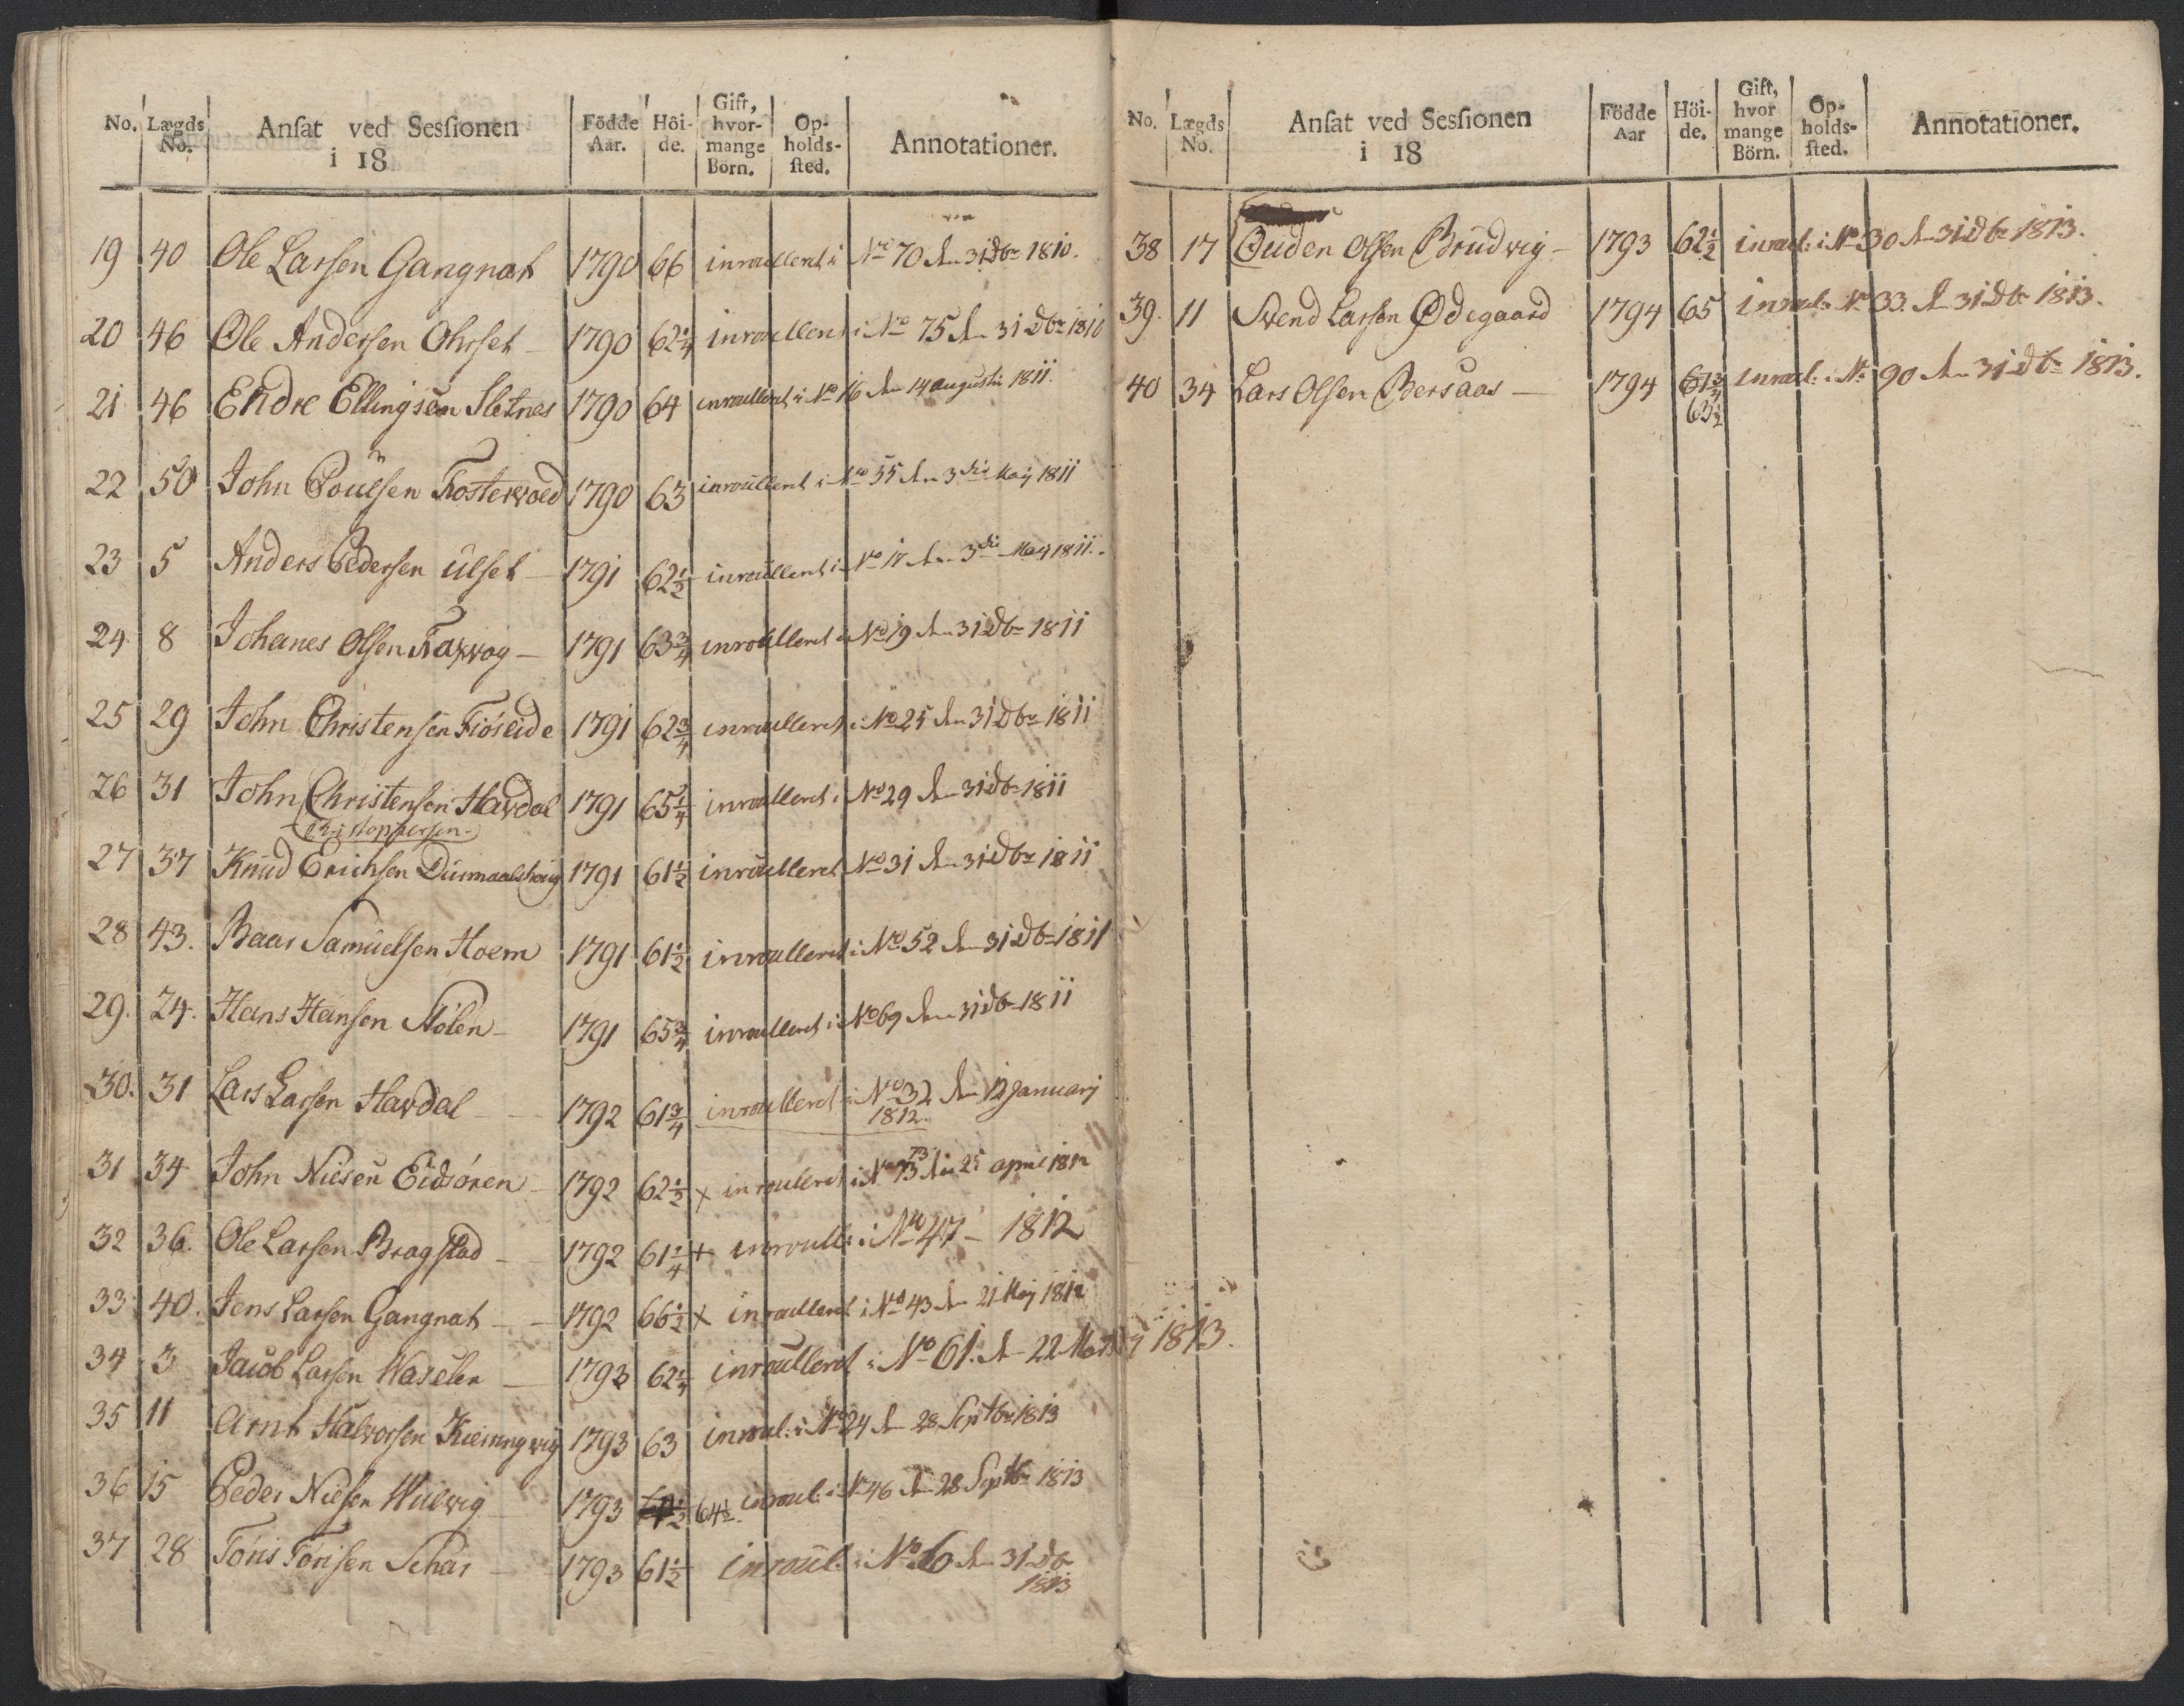 No. Lægds No. Ansat ved Sessionen i 18 Födde Aar. Höi-de. Gift, hvor-mange Börn. Op-holds-sted. Annotationer.
19 40 Ole Larsen Gangnat 1790 66 inroulleret i No 70 den 31 Dbr 1810.
20 46 Ole Andersen Ohrset 1790 62¼ inroulleret i No 75 den 31 Dbr 1810
21 46 Endre Ellingsen Sletnes 1790 64 inroulleret i No 16 den 14 Augusti 1811.
22 50 John Poulsen Fosterwold 1790 63 inroulleret i No 55 den 3die Maij 1811
23 5 Anders Pedersen Ulset 1791 62½ inroulleret i No 17 den 3die Maij 1811.
24 8 Johanes Olsen 1791 63¾ inroulleret i No 19 den 31 Dbr 1811
25 29 John Christensen Fiöseide 1791 62¾ inroulleret i No 25 den 31 Dbr 1811
26 31 John Christensen Havdal 1791 65¼ inroulleret i No 29 den 31 Dbr 1811
(Christophersen)
27 37 Knud Erichsen Durmaalshoug 1791 61½ inroulleret No 31 den 31 Dbr 1811
28 43. Baar Samuelsen Hoem 1791 61½ inroulleret i No 52 den 31 Dbr 1811
29. 24. Hans Hansen Stölen 1791 65¾ inroulleret i No 69 den 31 Dbr 1811
30. 31 Lars Larsen Havdal 1792 61¾ inroulleret i No 32 den 12 Januarj
1812.
31 34 John Nilsen Eidsören 1792 62½ x inrouleret i No 73 den 25 april 1812
32 36. Ole Larsen Bragstad 1792 61¼ + inroull: i No 47 - 1812
33 40. Jens Larsen Gangnat 1792 66½ x inroulleret i No 43 den 21 Maj 1812
34 3 Jacob Larsen Waselen 1793 62¼ inroulleret i No 61. d 22 Martij 1813.
35 11 Arnt Halvorsen 1793 63 inroul: i No 24 den 28 Septbr 1813
36 15 Peder Nilsen Hulvig 1793 64½. inroul: i No 46 den 28 Septbr 1813
37 28 Töris Törisen Schar 1793 61½ inroul: i No den 31 Db
1813
No. Lægds No. Ansat ved Sessionen i 18 Födde Aar Höi-de. Gift, hvor mange Börn. Op-holds-sted. Annotationer.
38 17 Ouden Olsen Brudvig 1793 62½ inroul: i No 30 den 31 Dbr 1813.
39. 11 Svend Larsen Ödegaard 1794 65 inroul: No 33. d 31 Dbr 1813.
40 34 Lars Olsen Bersaas 1794 61¾ inroul: i No 90 den 31 Dbr 1813.
63½